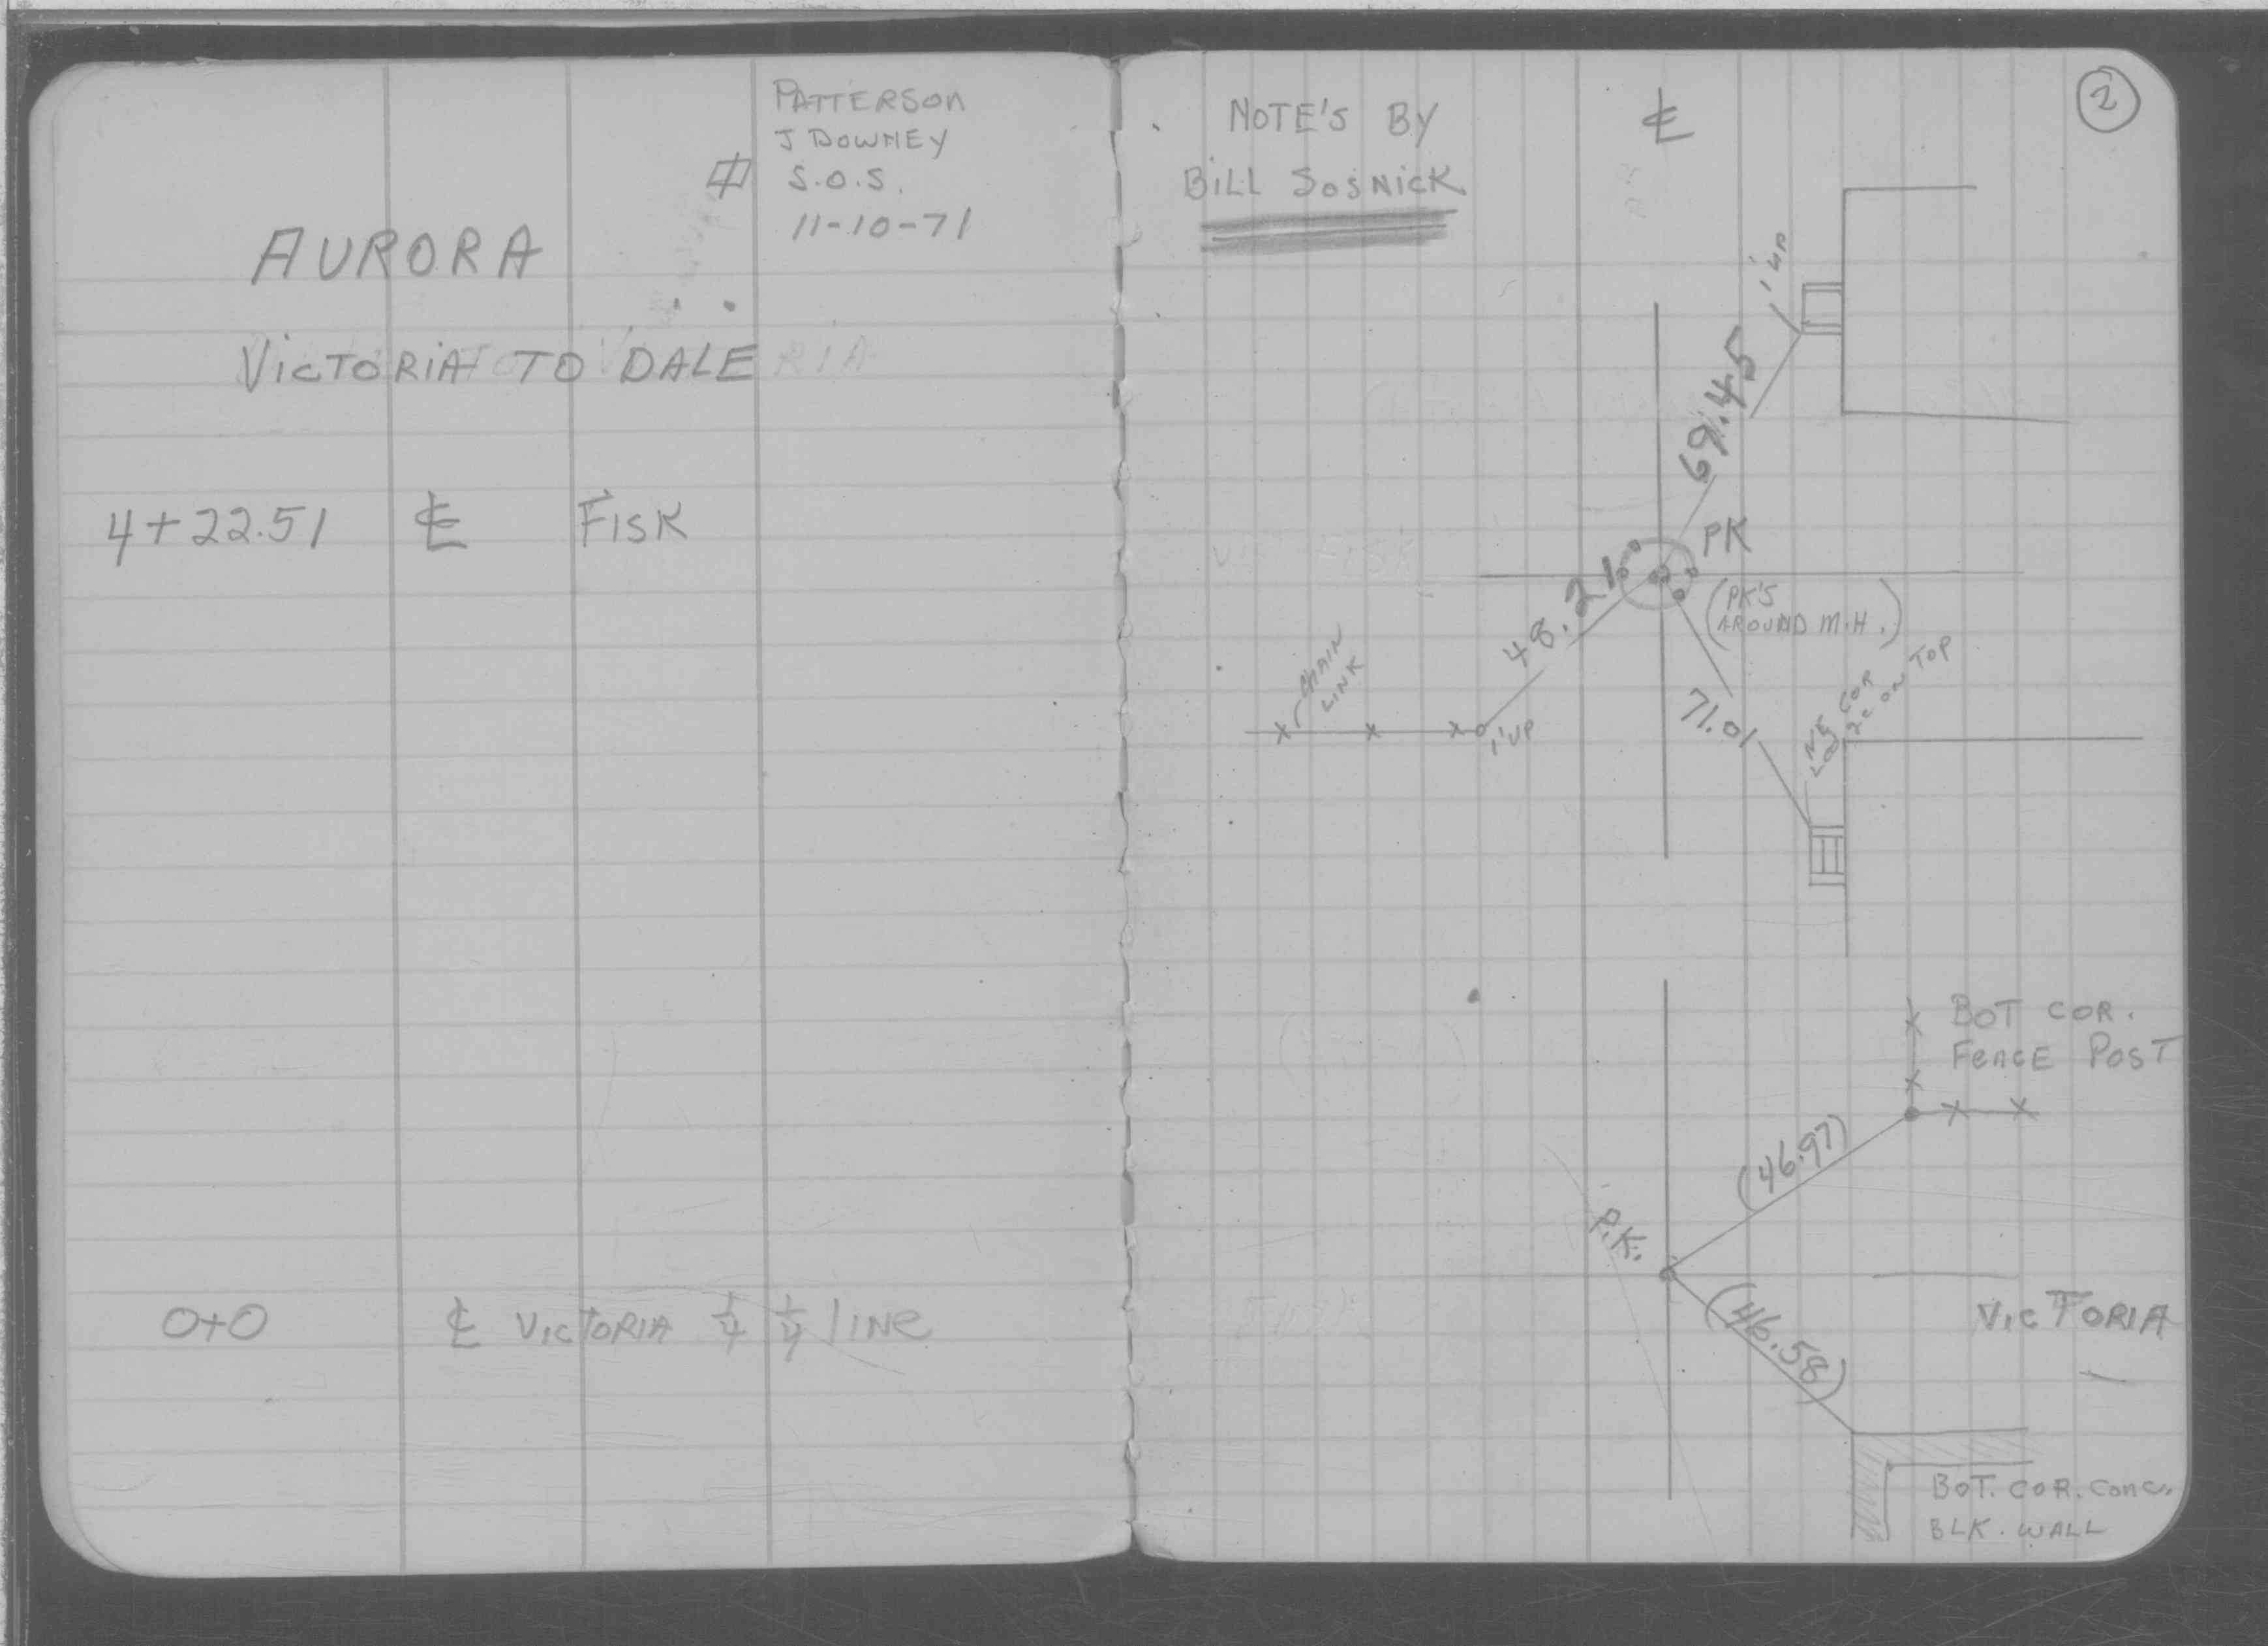 PATTERSON
J DOWNEY
S.O.S.
11-10-71
AURORA
VICTORIA TO DALE
4+22.51 ℄ FISK
0+0 ℄ VICTORIA 1/4 1/4 LINE
NOTE'S BY
BILL SOSNICK
℄
2
1' UP
69.45
PK
(PK'S
AROUND M.H.)
48.21
CHAIN
LINK
1' UP
71.01
COR
ON TOP
BOT COR.
FENCE POST
(46.97)
P.K.
(46.58)
VICTORIA
BOT. COR. CONC.
BLK. WALL